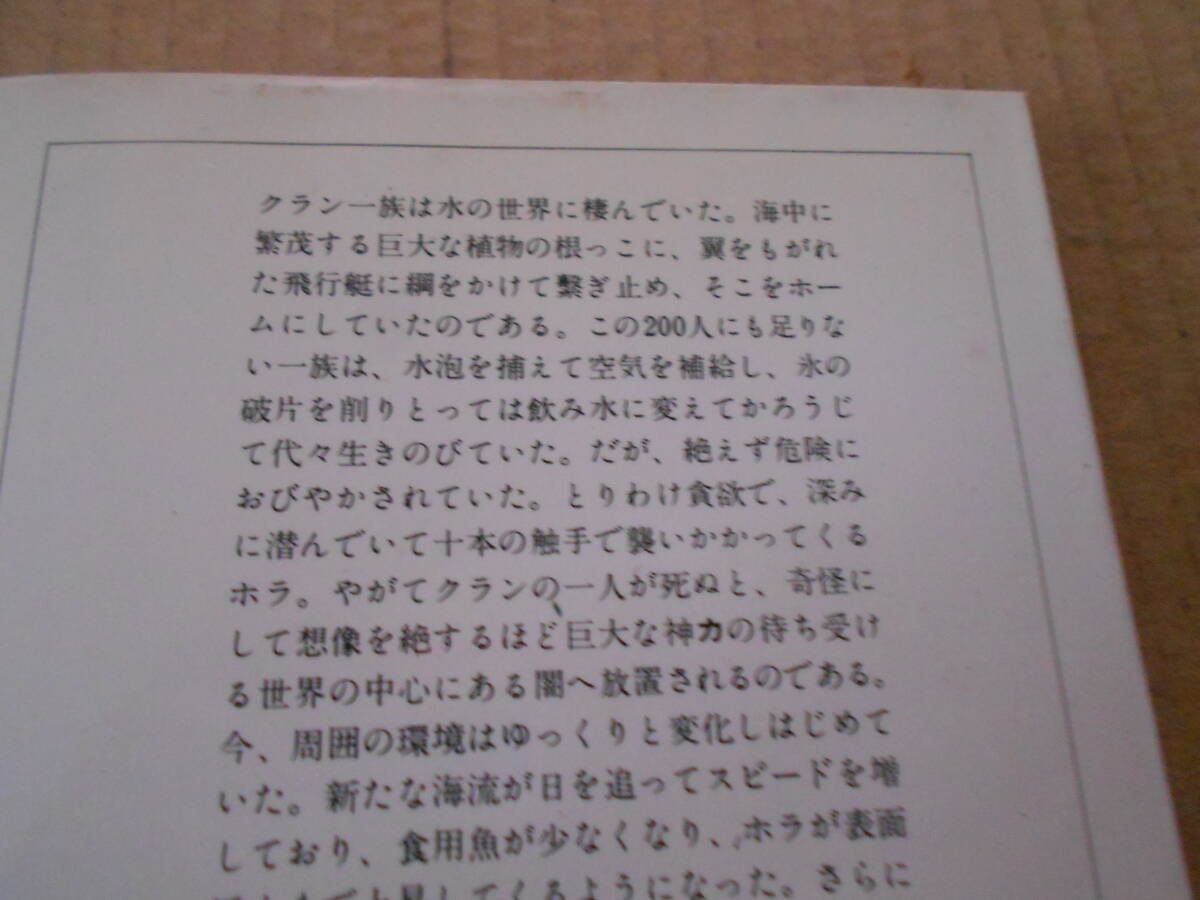 クラン一族は水の世界に棲んでいた。海中に
繁茂する巨大な植物の根っこに、翼をもがれ
た飛行艇に綱をかけて繋ぎ止め、そこをホー
ムにしていたのである。この200人にも足りな
い一族は、水泡を捕えて空気を補給し、氷の
破片を削りとっては飲み水に変えてかろうじ
て代々生きのびていた。だが、絶えず危険に
おびやかされていた。とりわけ貪欲で、深み
に潜んでいて十本の触手で襲いかかってくる
ホラ。やがてクランの一人が死ぬと、奇怪に
して想像を絶するほど巨大な神カの待ち受け
る世界の中心にある闇へ放置されるのである。
今、周囲の環境はゆっくりと変化しはじめて
いた。新たな海流が日を追ってスピードを増
しており、食用魚が少なくなり、ホラが表面
上昇してくるようになった。さらに